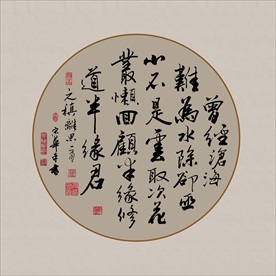 曾經滄海
難為水除卻巫
山不是雲取次花
叢懶回顧半緣修
道半緣君
元稹離思一首